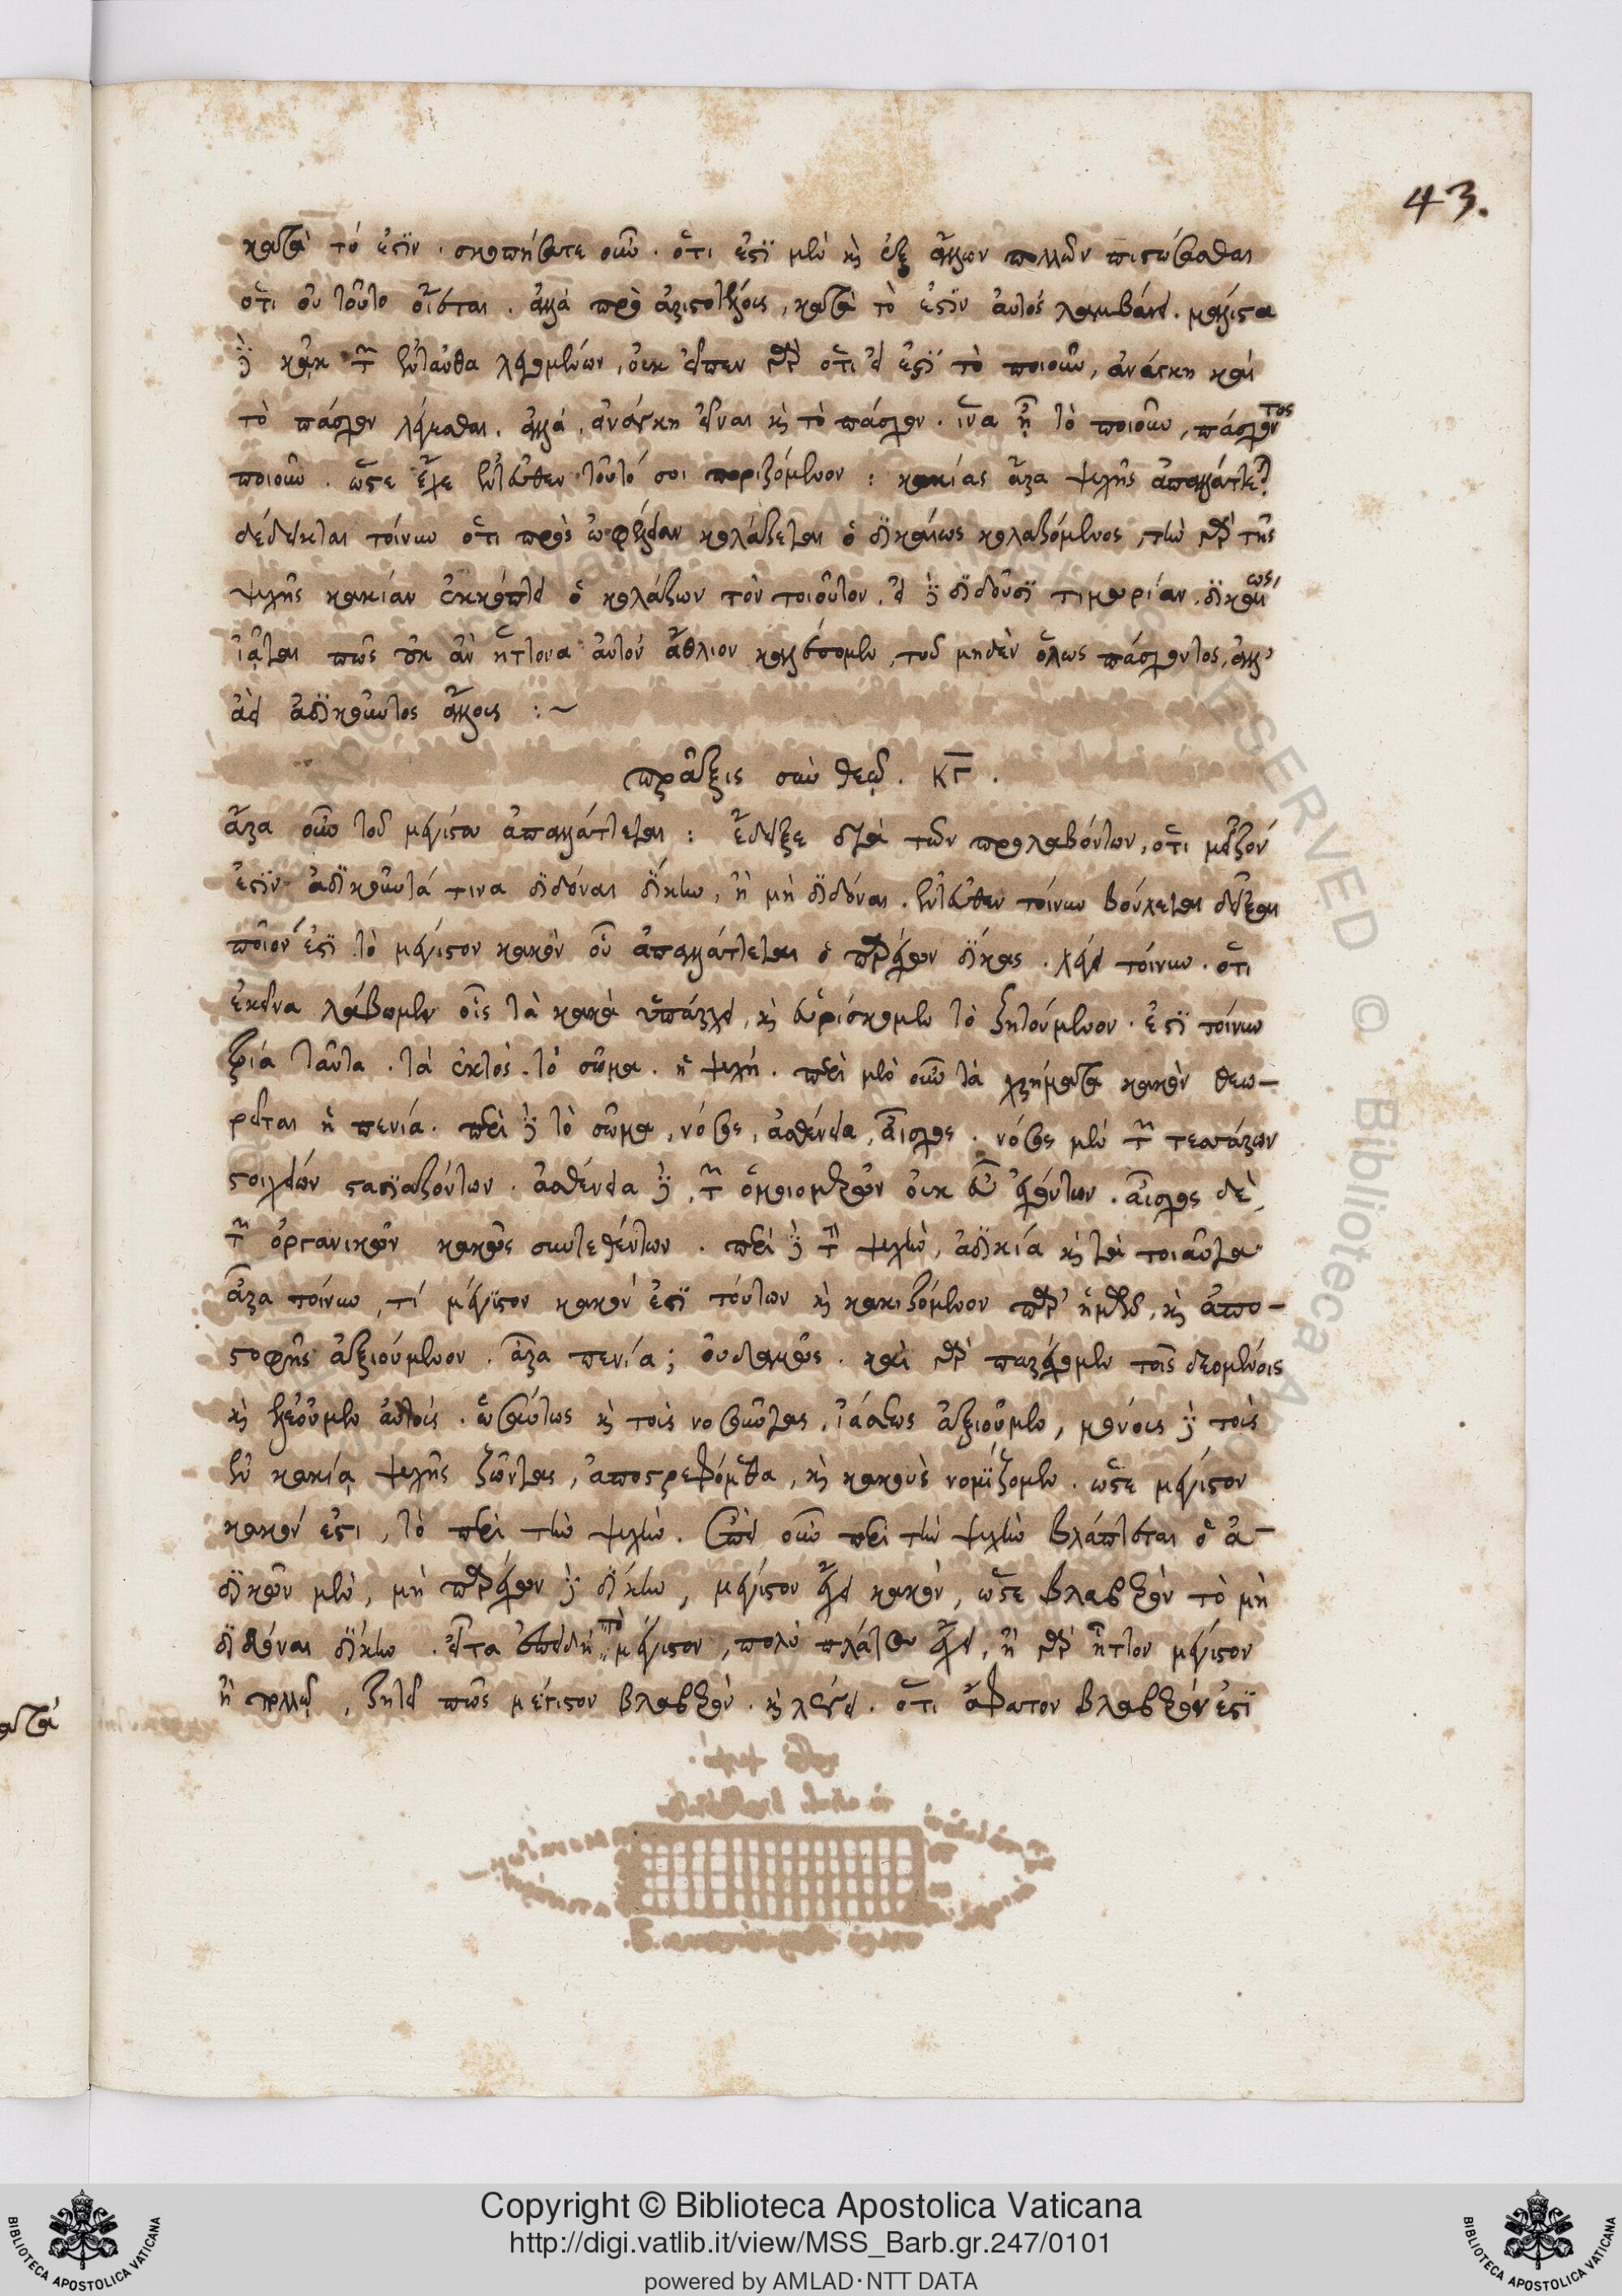 43.
κατὰ τό ἐστϊν · σκοπήσατε οὖν · ὅτι ἐστῒ μὲν καὶ ἐξ ἄλλων πολλῶν πιστώσασθαι
ὅτι οὐ τοῦτο οἴεται · ἀλλὰ πρὸ ἀριστοτέλους, κατὰ τὸ ἐστῒν αὐτὸς λαμβάνει · μάλιστα
δὲ κἀκ τῶν ἐνταῦθα λεγομένων, οὐκ εἶπεν γὰρ ὅτι εἰ ἐστῒ τὸ ποιοῦν, ἀνάγκη καὶ
τὸ πάσχον λέγεσθαι, ἀλλά, ἀνάγκη εἶναι καὶ τὸ πάσχον · ἵνα ᾖ τὸ ποιοῦν, πάσχοντος
ποιοῦν · ὥστε ἔχε ἐντεῦθεν τοῦτό σοι ποριζόμενον : κακίας ἄρα ψυχῆς ἀπαλλάττεται
δέδεικται τοίνυν ὅτι πρὸς ὠφέλειαν κολάζεται ὁ δϊκαίως κολαζόμενος, τὴν γὰρ τῆς
ψυχῆς κακίαν ἐκκόπτει ὁ κολάζων τὸν τοιοῦτον, εἰ δὲ δϊδοῦσϊ τιμωρίαν, δϊκαίως,
ἰᾶται πῶς οὐκ ἂν ἥττονα αὐτὸν ἄθλιον καλέσομεν, τοῦ μηδὲν ὅλως πάσχοντος, ἀλλ'
ἀεὶ ἀδϊκοῦντος ἄλλους :~
πρᾶξις σὺν θεῷ · ΚΓ ·
ἆρα οὖν τοῦ μεγίστου ἀπαλλάττεται : ἔδειξε διὰ τῶν προλαβόντων, ὅτι μεῖζόν
ἐστϊν ἀδϊκοῦντά τινα δϊδόναι δίκην, ἢ μὴ δϊδόναι · ἐντεῦθεν τοίνυν βούλεται δεῖξαι
ποῖόν ἐστϊ τὸ μέγιστον κακὸν οὗ ἀπαλλάττεται ὁ παρέχων δίκας · λέγει τοίνυν · ὅτι
ἐκεῖνα λάβωμεν οἷς τὰ κακὰ ὑπάρχει, καὶ εὑρίσκομεν τὸ ζητούμενον · ἐστῒ τοίνυν
τρία ταῦτα · τὰ ἐκτὸς · τὸ σῶμα · ἡ ψυχή · περὶ μὲν οὖν τὰ χρήματα κακὸν θεω-
ρεῖται ἡ πενία · περὶ δὲ τὸ σῶμα, νόσος, ἀσθένεια, αἶσχος · νόσος μὲν τῶν τεσσάρων
στοιχείων στασϊαζόντων · ἀσθένεια δὲ, τῶν ὁμοιομερῶν οὐκ εὖ ἐχόντων · αἶσχος δὲ,
τῶν ὀργανικῶν κακῶς συντεθέντων · περὶ δὲ τὴν ψυχὴν, ἀδϊκία καὶ τὰ τοιαῦτα
ἆρα τοίνυν, τί μέγϊστον κακόν ἐστϊ τούτων καὶ κακιζόμενον παρ' ἡμῖν, καὶ ἀπο-
στροφῆς ἀξιούμενον · ἆρα πενία; οὐδαμῶς · καὶ γὰρ παρέχομεν τοῖς δεομένοις
καὶ ἐλεοῦμεν αὐτοὺς · ὡσαύτως καὶ τοὺς νοσοῦντας, ἰάσεως ἀξιοῦμεν, μόνους δὲ τοὺς
ἐν κακίᾳ ψυχῆς ζῶντας, ἀποστρεφόμεθα, καὶ κακοὺς νομϊζομεν · ὥστε μέγιστον
κακόν ἐστι, τὸ περὶ τὴν ψυχὴν · ἐπεὶ οὖν περὶ τὴν ψυχὴν βλάπτεται ὁ ἀ-
δϊκῶν μὲν, μὴ παρέχων δὲ δίκην, μέγιστον ἔχει κακόν, ὥστε βλαβερὸν τὸ μὴ
δϊδόναι δίκην · εἶτα ἐπειδὴ τὸ μέγιστον, πολὺ πλάτος ἔχει, ἢ γὰρ ἧττον μέγιστον
ἢ πολλῷ, ζητεῖ πῶς μέγιστον βλαβερόν · καὶ λέγει · ὅτι ἄφατον βλαβερόν ἐστϊ
Copyright © Biblioteca Apostolica Vaticana
http://digi.vatlib.it/view/MSS_Barb.gr.247/0101
powered by AMLAD·NTT DATA